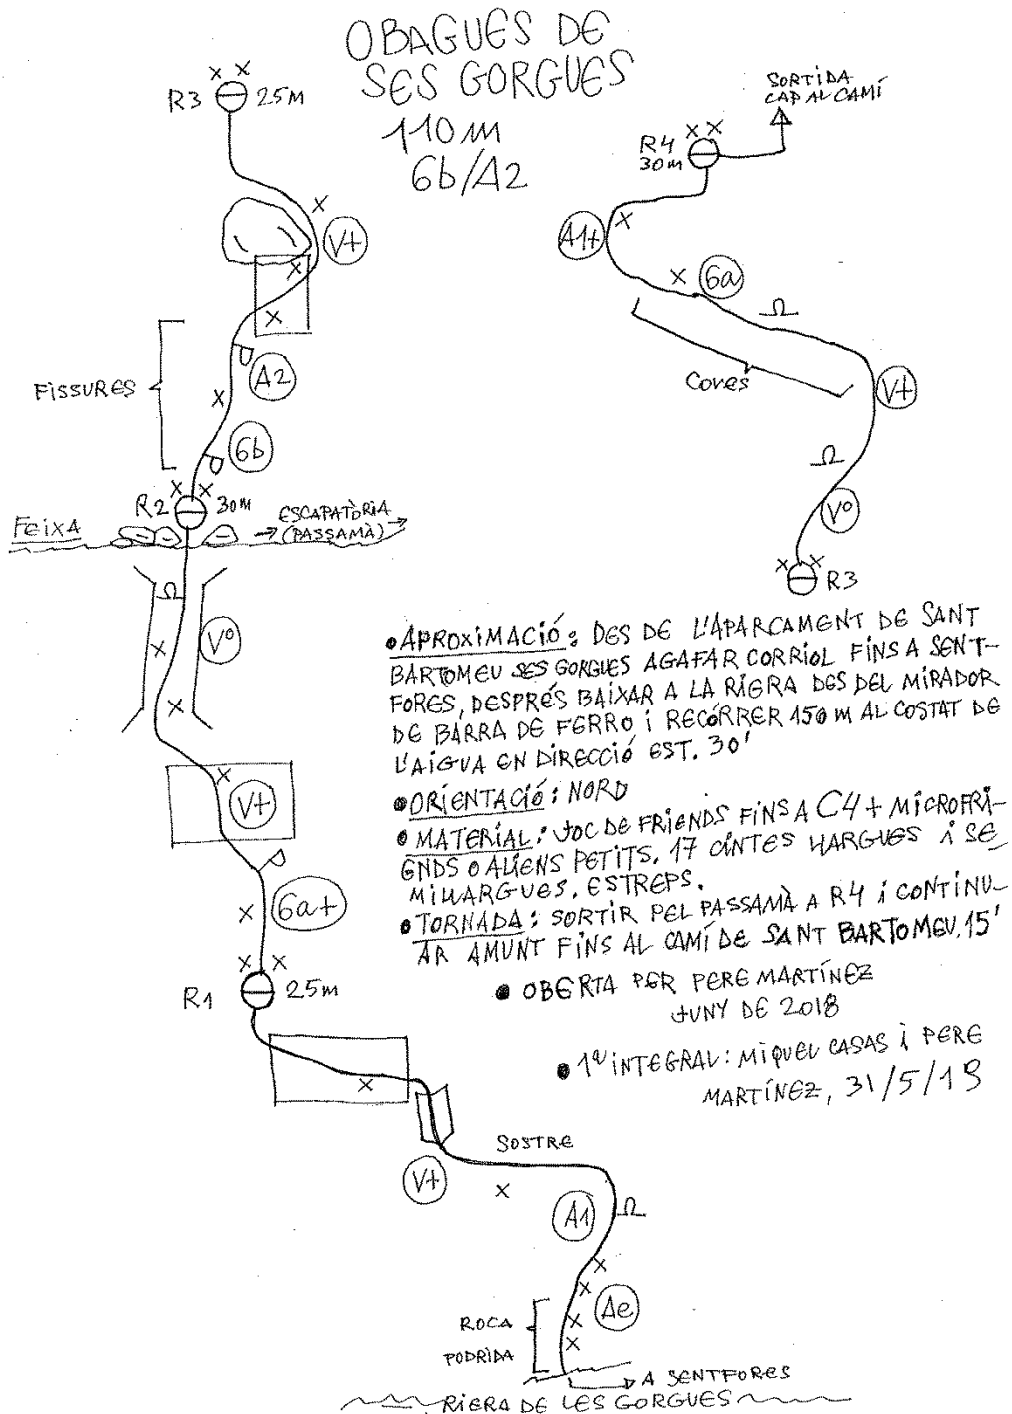 OBAGUES DE
SES GORGUES
110m
6b/A2
R3 25M
V+
A2
FISSURES
6b
R2 30m
FEIXA
ESCAPATÒRIA
(PASSAMÀ)
Vº
V+
6a+
R1 25m
SOSTRE
V+
A1
Ae
ROCA
PODRIDA
A SENTFORES
RIERA DE LES GORGUES
SORTIDA
CAP AL CAMÍ
R4
30m
A1+
6a
Coves
V+
Vº
R3
• APROXIMACIÓ: DES DE L'APARCAMENT DE SANT
BARTOMEU SES GORGUES AGAFAR CORRIOL FINS A SENT-
FORES, DESPRÉS BAIXAR A LA RIERA DES DEL MIRADOR
DE BARRA DE FERRO i RECÓRRER 150 M AL COSTAT DE
L'AIGUA EN DIRECCIÓ EST. 30'
• ORIENTACIÓ: NORD
• MATERIAL: JOC DE FRIENDS FINS A C4 + MICROFRI-
ENDS O ALIENS PETITS. 17 CINTES LLARGUES i SE
MILLARGUES. ESTREPS.
• TORNADA: SORTIR PEL PASSAMÀ A R4 i CONTINU-
AR AMUNT FINS AL CAMÍ DE SANT BARTOMEU. 15'
• OBERTA PER PERE MARTÍNEZ
JUNY DE 2018
• 1ª INTEGRAL: MIQUEL CASAS i PERE
MARTÍNEZ, 31/5/19